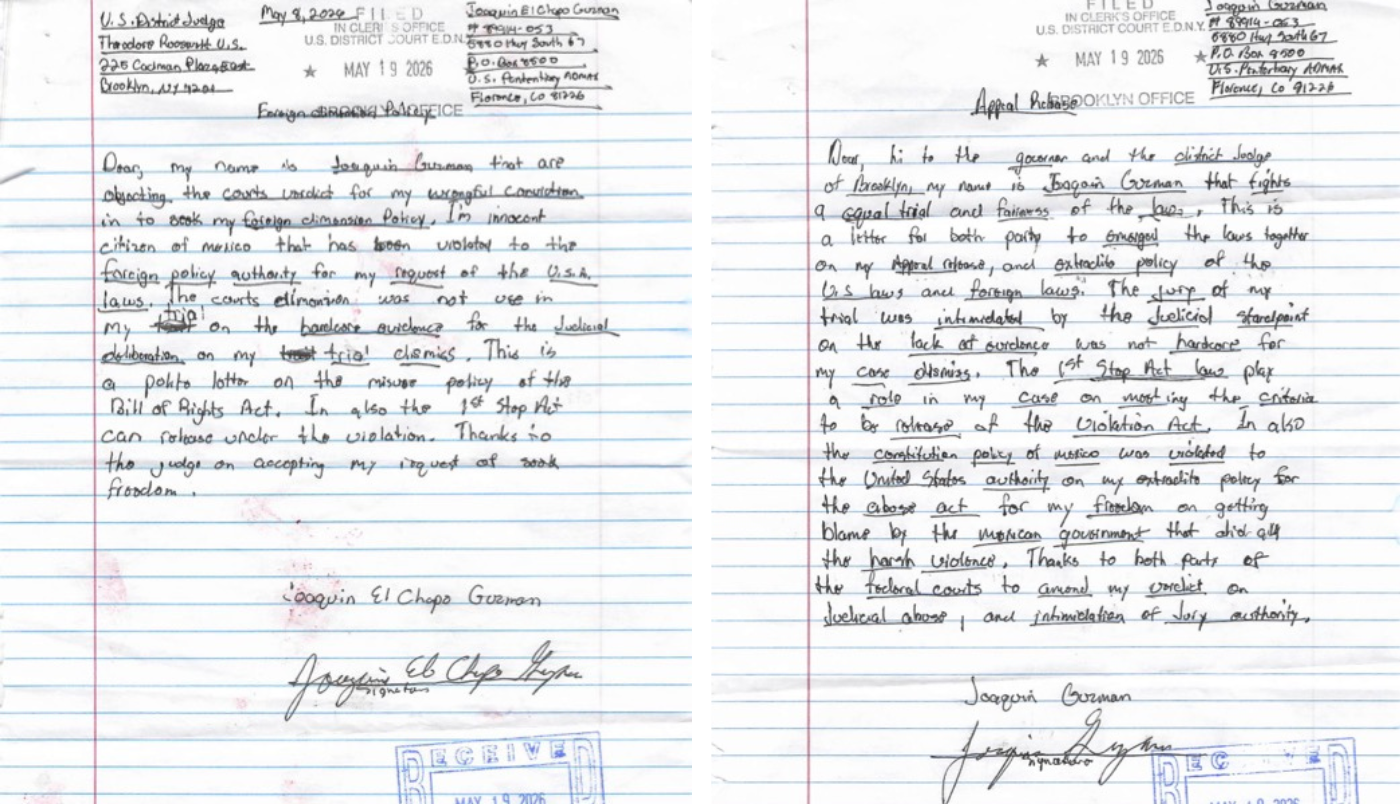 U.S. District Judge
Theodore Roosevelt U.S.
225 Cadman Plaza East
Brooklyn, NY
May 8, 2026
FILED
IN CLERK'S OFFICE
U.S. DISTRICT COURT E.D.N.Y.
★ MAY 19 2026 ★
OFFICE
Joaquin El Chapo Guzman
# 89914-053
5880 Hwy South 67
P.O. Box 8500
U.S. Penitentiary ADMAX
Florence, Co 81226
Foreign Policy
Dear, my name is Joaquin Guzman that are
objecting the courts verdict for my wrongful conviction
in to seek my foreign dimension Policy. I'm innocent
citizen of mexico that has been violated to the
foreign policy authority for my request of the U.S.A.
laws. The courts dimension was not use in
my trial on the hardcore evidence for the Judicial
deliberation on my trial dismiss. This is
a polite letter on the misuse policy of the
Bill of Rights Act. In also the 1st Stop Act
can release under the violation. Thanks to
the judge on accepting my request of seek
freedom.
Joaquin El Chapo Guzman
Joaquin El Chapo Guzman
signature
RECEIVED
MAY 19 2026
FILED
IN CLERK'S OFFICE
U.S. DISTRICT COURT E.D.N.Y.
★ MAY 19 2026 ★
BROOKLYN OFFICE
Joaquin Guzman
# 89914-053
5880 Hwy South 67
P.O. Box 8500
U.S. Penitentiary ADMAX
Florence, Co 81226
Appeal Release
Dear, hi to the governor and the district Judge
of Brooklyn, my name is Joaquin Guzman that fights
a equal trial and fairness of the laws. This is
a letter for both party to emerged the laws together
on my Appeal release, and extradite policy of the
U.S laws and foreign laws. The jury of my
trial was intimidated by the Judicial standpoint
on the lack of evidence was not hardcore for
my case dismiss. The 1st Stop Act law play
a role in my case on meeting the criteria
to be release of the Violation Act. In also
the constitution policy of mexico was violated to
the United States authority on my extradite policy for
the abuse act for my freedom on getting
blame by the mexican government that did all
the harsh violence. Thanks to both parts of
the federal courts to amend my verdict on
Judicial abuse, and intimidation of Jury authority.
Joaquin Guzman
Joaquin Guzman
signature
RECEIVED
MAY 19 2026